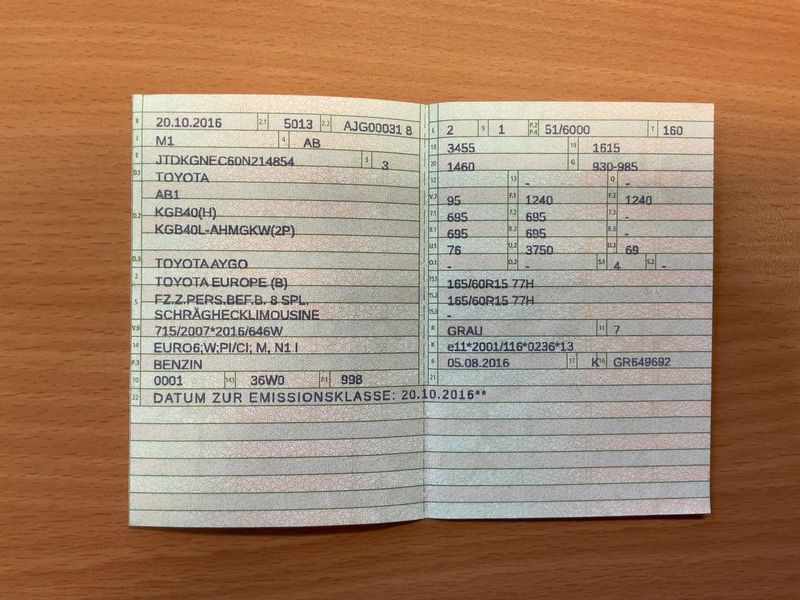 B 20.10.2016 2.1 5013 2.2 AJG00031 8
J M1 4 AB
E JTDKGNEC60N214854 3 3
D.1 TOYOTA
AB1
D.2 KGB40(H)
KGB40L-AHMGKW(2P)
D.3 TOYOTA AYGO
2 TOYOTA EUROPE (B)
5 FZ.Z.PERS.BEF.B. 8 SPL.
SCHRÄGHECKLIMOUSINE
V.9 715/2007*2016/646W
14 EURO6;W:PI/CI; M, N1 I
P.3 BENZIN
10 0001 14.1 36W0 P.1 998
22 DATUM ZUR EMISSIONSKLASSE: 20.10.2016**
L 2 9 1 P.2 P.4 51/6000 T 160
18 3455 19 1615
20 1460 G 930-985
12 - 13 - Q -
V.7 95 F.1 1240 F.2 1240
7.1 695 7.2 695 7.3 -
8.1 695 8.2 695 8.3 -
U.1 76 U.2 3750 U.3 69
O.1 - O.2 - S.1 4 S.2 -
15.1 165/60R15 77H
15.2 165/60R15 77H
15.3 -
R GRAU 11 7
K e11*2001/116*0236*13
6 05.08.2016 17 K 16 GR649692
21